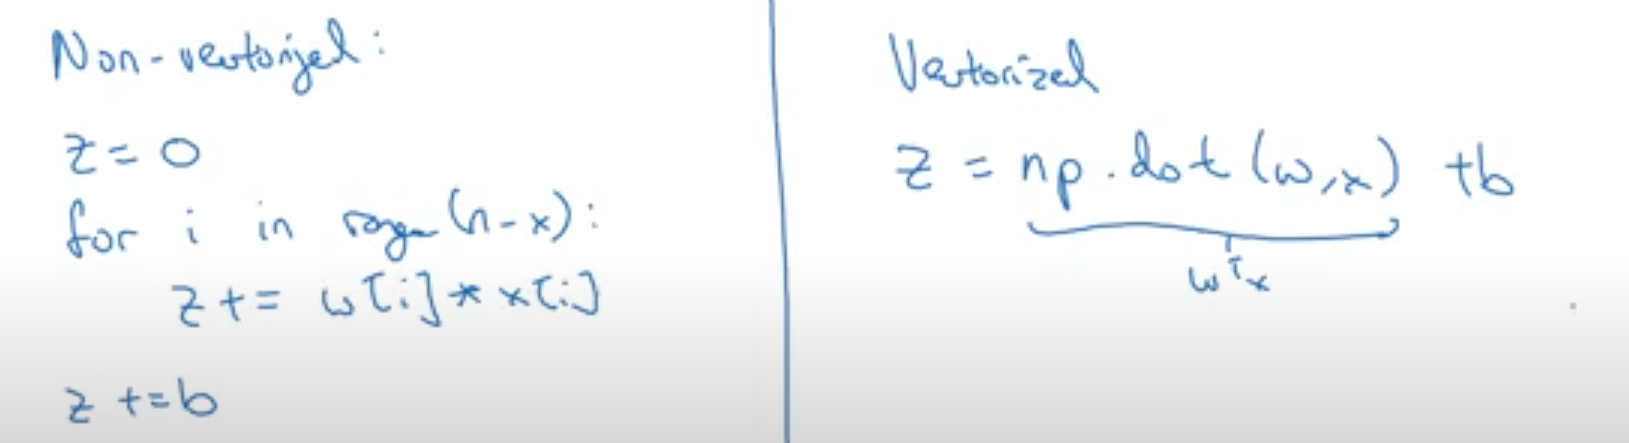 Non-vectorized:
z = 0
for i in range(n-x):
z += w[i] * x[i]
z += b
Vectorized
z = np.dot(w,x) + b
wᵀx